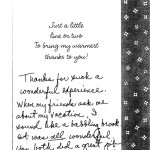 Just a little
line or two
To bring my warmest
thanks to you!
Thanks for such a
wonderful experience.
When my friends ask me
about my vacation, I
sound like a babbling brook
It was all wonderful
You both did a great job